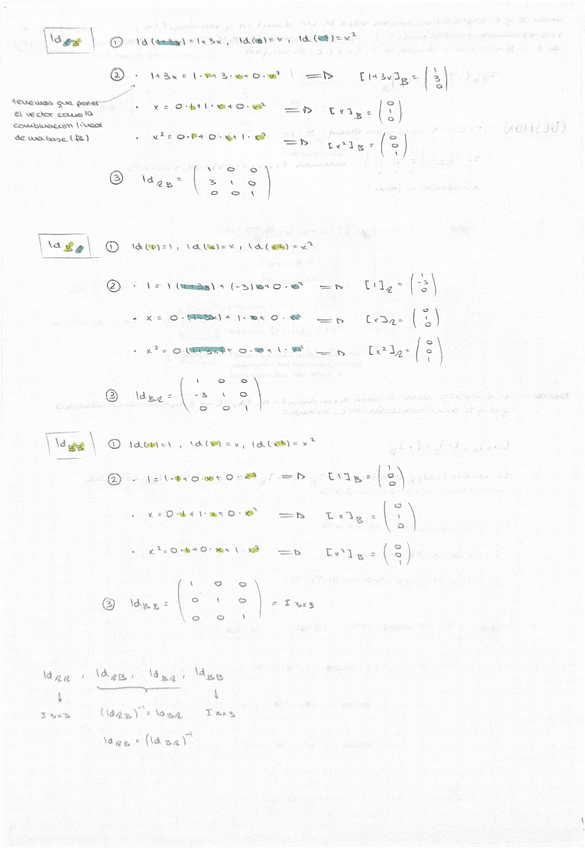 Id RB ① Id(1+3x)=1+3x, Id(x)=x, Id(x²)=x²
② · 1+3x = 1·1+3·x+0·x² => [1+3x]B = (1 3 0)
tenemos que poner el vector como la combinacion lineal de una base (B)
· x = 0·1+1·x+0·x² => [x]B = (0 1 0)
· x² = 0·1+0·x+1·x² => [x²]B = (0 0 1)
③ Id RB = (1 0 0
3 1 0
0 0 1)
Id BR ① Id(1)=1, Id(x)=x, Id(x²)=x²
② · 1 = 1(1+3x)+(-3)x+0·x² => [1]R = (1 -3 0)
· x = 0·(1+3x)+1·x+0·x² => [x]R = (0 1 0)
· x² = 0·(1+3x)+0·x+1·x² => [x²]R = (0 0 1)
③ Id BR = (1 0 0
-3 1 0
0 0 1)
Id BB ① Id(1)=1, Id(x)=x, Id(x²)=x²
② · 1 = 1·1+0·x+0·x² => [1]B = (1 0 0)
· x = 0·1+1·x+0·x² => [x]B = (0 1 0)
· x² = 0·1+0·x+1·x² => [x²]B = (0 0 1)
③ Id BB = (1 0 0
0 1 0
0 0 1) = I 3x3
Id RR, Id RB, Id BR, Id BB
↓ ↓
I 3x3 (Id RB)⁻¹ = Id BR I 3x3
Id RB = (Id BR)⁻¹